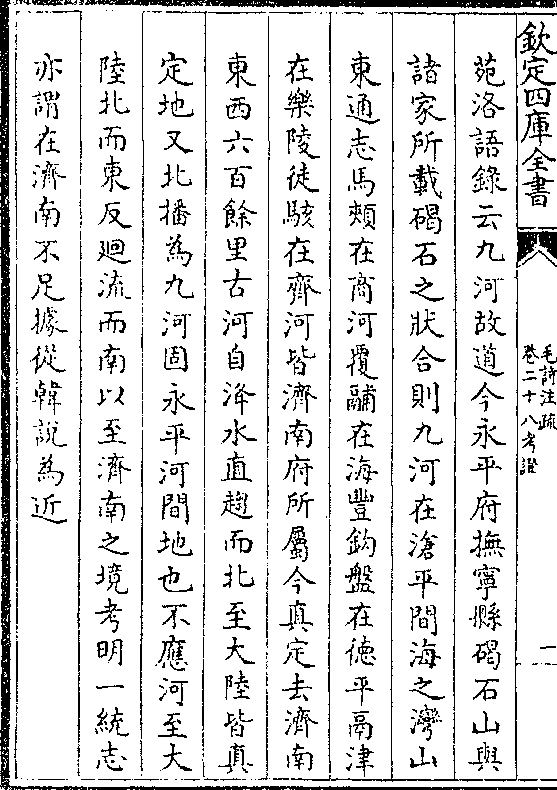 欽定四庫全書
毛詩注疏
卷二十八考證
一
苑洛語錄云九河故道今永平府撫寧縣碣石山與
諸家所載碣石之狀合則九河在滄平間海之灣山
東通志馬頰在商河覆鬴在海豐鈎盤在德平鬲津
在樂陵徒駭在齊河皆濟南府所屬今真定去濟南
東西六百餘里古河自洚水直趨而北至大陸皆真
定地又北播為九河固永平河間地也不應河至大
陸北而東反迴流而南以至濟南之境考明一統志
亦謂在濟南不足據從韓說為近